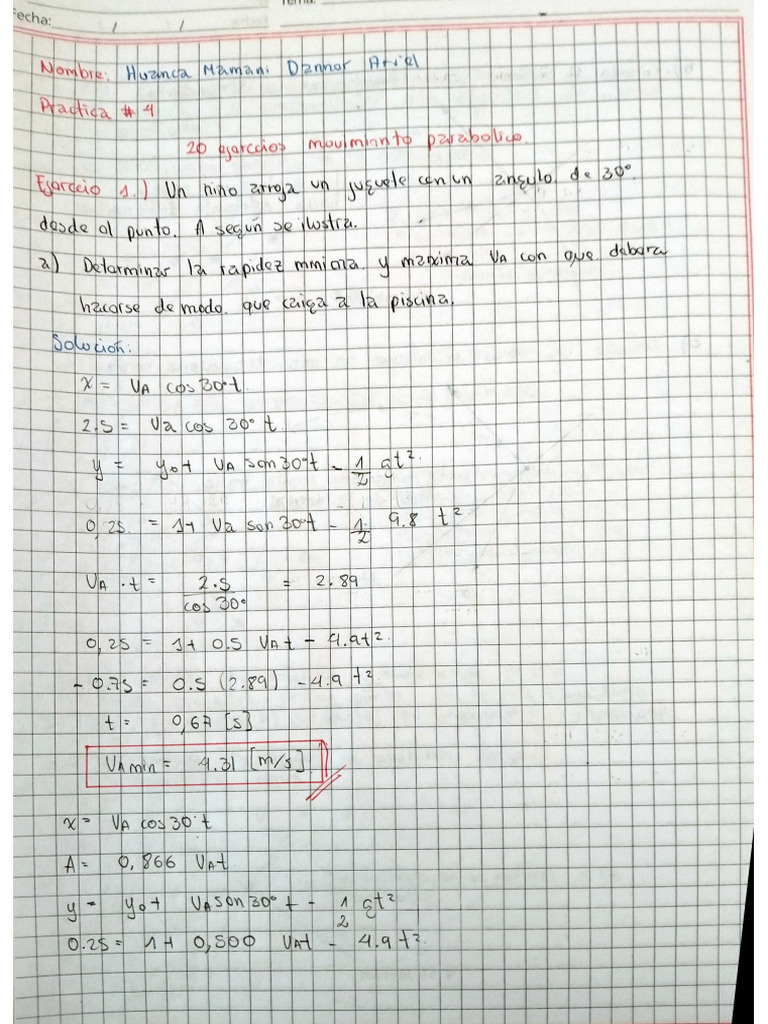 Fecha: / /
Tema:
Nombre: Huanca Mamani Dannor Ariel
Practica # 4
20 ejerccios moviminnto parabolico.
Ejerccio 1.) Un niño arroja un juguete con un angulo de 30°
desde al punto. A según se ilustra.
a) Determinar la rapidez mmima y maxima VA con que debara
hacorse de modo que caiga a la piscina.
Solución:
x = VA cos 30° t.
2.5 = Va cos 30° t.
y = y0 + VA sen 30° t - 1/2 gt².
0,25 = 1 + Va sen 30° t - 1/2 9.8 t²
VA · t = 2.5/cos 30° = 2.89
0,25 = 1 + 0.5 VA t - 4.9t².
- 0.75 = 0.5 (2.89) - 4.9 t²
t = 0,67 [s]
VA min = 4.31 [m/s]
x = VA cos 30° t
A = 0,866 VA t
y = y0 + VA sen 30° t - 1/2 gt²
0.25 = 1 + 0,500 VA t - 4.9 t².